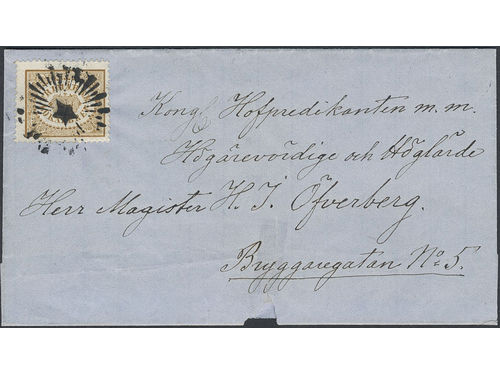 Kongl Hofpredikanten m.m.
Högärevördige och Höglärde
Herr Magister H. J. Öfverberg.
Bryggaregatan No 5.